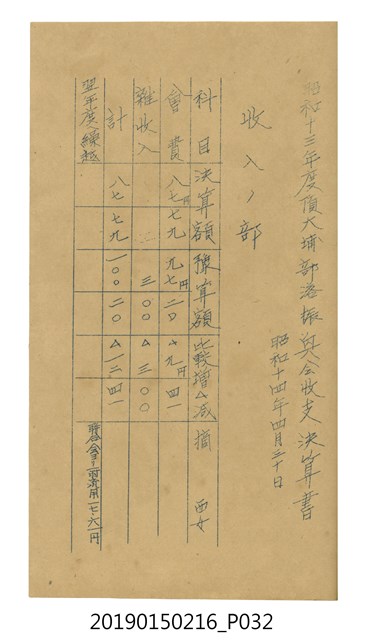 昭和十三年度頂大埔部落振興会收支決算書
昭和十四年四月三十日
收入ノ部
科目 決算額 豫算額 比較増△減 摘要
会費 八七円七九 九七円二〇 △九円四一
雜收入 三〇〇 △三〇〇
計 八七七九 一〇〇二〇 △一二四一
翌年度ヘ繰越
20190150216_P032